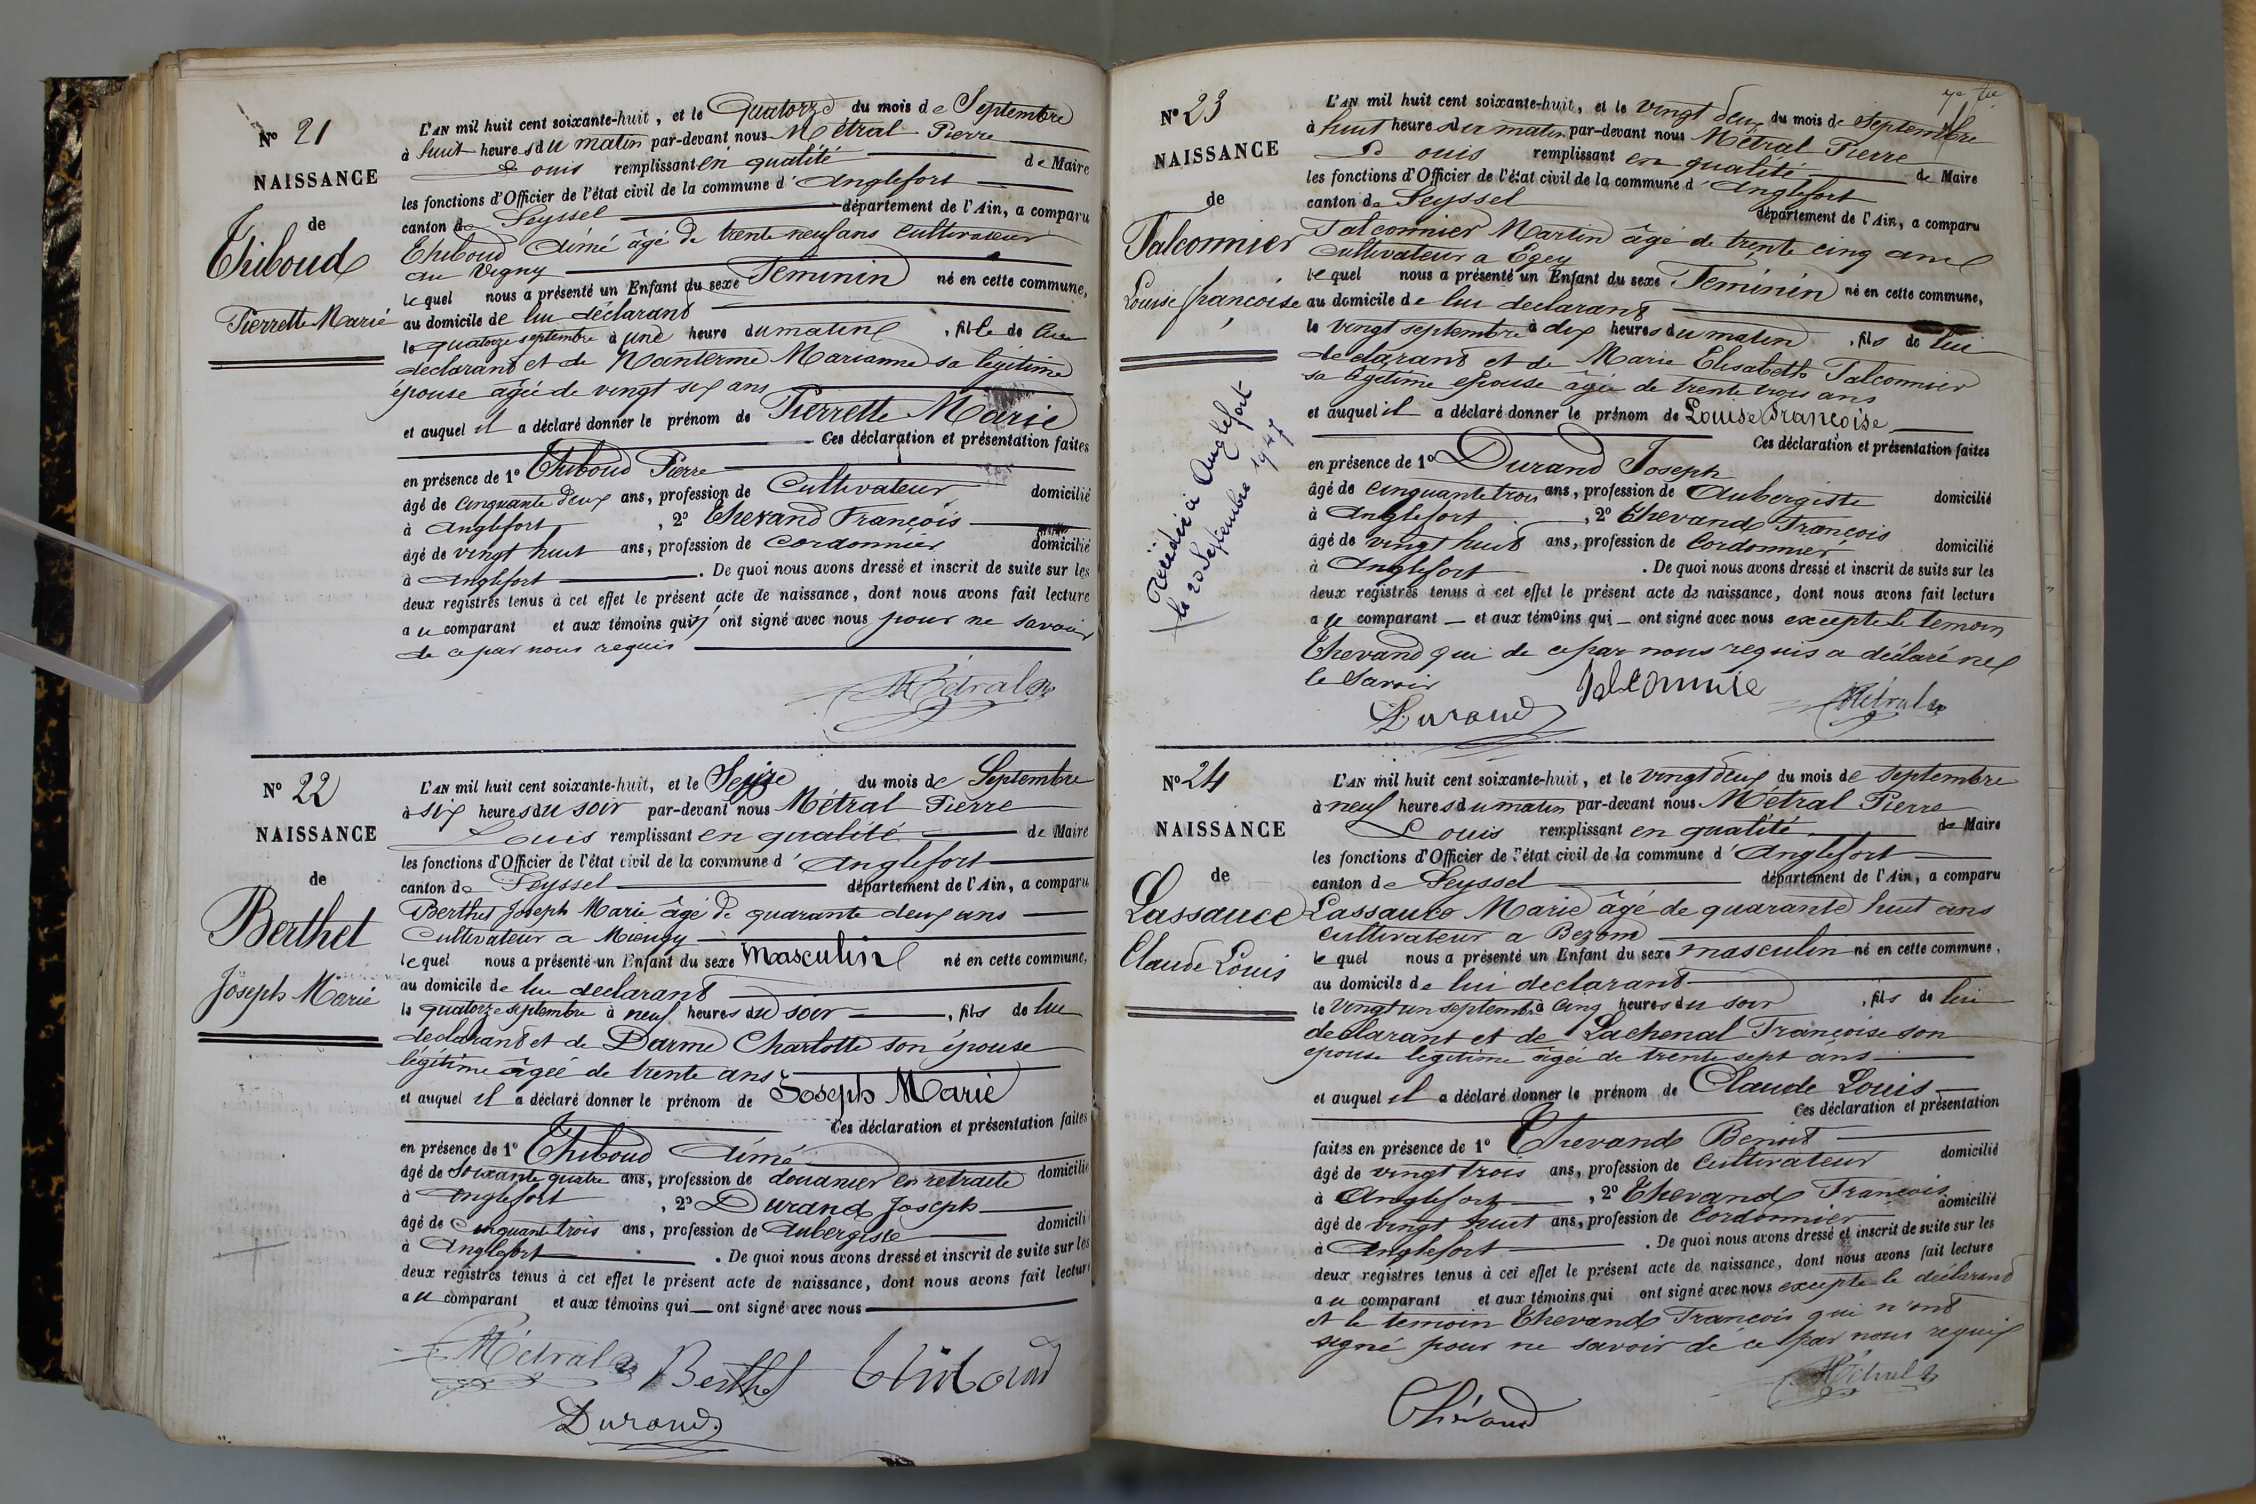 N° 21
NAISSANCE
de
Thiboud
Pierrette Marie
L'AN mil huit cent soixante-huit, et le Quatorze du mois de Septembre
à huit heures du matin par-devant nous Métral Pierre
Louis remplissant en qualité de Maire
les fonctions d'Officier de l'état civil de la commune d'Anglefort
canton de Seyssel département de l'Ain, a comparu
Thiboud Aimé âgé de trente neuf ans cultivateur
au Vigny
lequel nous a présenté un Enfant du sexe Féminin né en cette commune,
au domicile de lui déclarant
le quatorze septembre à une heure du matin, fille de lui
déclarant et de Nanterme Marianne sa légitime
épouse âgée de vingt six ans
et auquel il a déclaré donner le prénom de Pierrette Marie
Ces déclaration et présentation faites
en présence de 1° Thiboud Pierre
âgé de cinquante deux ans, profession de Cultivateur domicilié
à Anglefort, 2° Thevand François
âgé de vingt huit ans, profession de Cordonnier domicilié
à Anglefort. De quoi nous avons dressé et inscrit de suite sur les
deux registres tenus à cet effet le présent acte de naissance, dont nous avons fait lecture
au comparant et aux témoins qui n'ont signé avec nous pour ne savoir
de ce par nous requis
Métral
N° 22
NAISSANCE
de
Berthet
Joseph Marie
L'AN mil huit cent soixante-huit, et le Seize du mois de Septembre
à six heures du soir par-devant nous Métral Pierre
Louis remplissant en qualité de Maire
les fonctions d'Officier de l'état civil de la commune d'Anglefort
canton de Seyssel département de l'Ain, a comparu
Berthet Joseph Marie âgé de quarante deux ans
Cultivateur a
lequel nous a présenté un Enfant du sexe Masculin né en cette commune,
au domicile de lui declarant
le quatorze septembre à neuf heures du soir, fils de lui
declarant et de Darme Charlotte son épouse
légitime âgée de trente ans
et auquel il a déclaré donner le prénom de Joseph Marie
Ces déclaration et présentation faites
en présence de 1° Thiboud Aimé
âgé de Soixante quatre ans, profession de douanier en retraite domicilié
à Anglefort, 2° Durand Joseph
âgé de Cinquante trois ans, profession de Aubergiste domicilié
à Anglefort. De quoi nous avons dressé et inscrit de suite sur les
deux registres tenus à cet effet le présent acte de naissance, dont nous avons fait lecture
au comparant et aux témoins qui ont signé avec nous
Métral Berthet thiboud
Durand
N° 23
NAISSANCE
de
Falconnier
Louise françoise
Décédée à Anglefort
le 20 Septembre 1947
L'AN mil huit cent soixante-huit, et le vingt deux du mois de Septembre
à huit heures du matin par-devant nous Métral Pierre
Louis remplissant en qualité de Maire
les fonctions d'Officier de l'état civil de la commune d'Anglefort
canton de Seyssel département de l'Ain, a comparu
Falconnier Martin âgé de trente cinq ans
Cultivateur a Egey
lequel nous a présenté un Enfant du sexe Féminin né en cette commune,
au domicile de lui declarant
le vingt septembre à dix heures du matin, fils de lui
declarant et de Marie Elisabeth Falconnier
sa légitime epouse âgée de trente trois ans
et auquel il a déclaré donner le prénom de Louise Françoise
Ces déclaration et présentation faites
en présence de 1° Durand Joseph
âgé de cinquante trois ans, profession de Aubergiste domicilié
à Anglefort, 2° Thevand François
âgé de vingt huit ans, profession de Cordonnier domicilié
à Anglefort. De quoi nous avons dressé et inscrit de suite sur les
deux registres tenus à cet effet le présent acte de naissance, dont nous avons fait lecture
au comparant et aux témoins qui ont signé avec nous excepté le temoin
Thevand qui de ce par nous requis a déclaré ne
le savoir
Durand Métral
N° 24
NAISSANCE
de
Lassauce
Claude Louis
L'AN mil huit cent soixante-huit, et le vingt deux du mois de septembre
à neuf heures du matin par-devant nous Métral Pierre
Louis remplissant en qualité de Maire
les fonctions d'Officier de l'état civil de la commune d'Anglefort
canton de Seyssel département de l'Ain, a comparu
Lassauce Marie âgé de quarante huit ans
cultivateur a Bezom
lequel nous a présenté un Enfant du sexe masculin né en cette commune,
au domicile de lui declarant
le vingt un septembre à cinq heures du soir, fils de lui
declarant et de Lachenal Françoise son
épouse légitime âgée de trente sept ans
et auquel il a déclaré donner le prénom de Claude Louis
Ces déclaration et présentation
faites en présence de 1° Thevand Benoit
âgé de vingt trois ans, profession de Cultivateur domicilié
à Anglefort, 2° Thevand François
âgé de vingt huit ans, profession de Cordonnier domicilié
à Anglefort. De quoi nous avons dressé et inscrit de suite sur les
deux registres tenus à cet effet le présent acte de naissance, dont nous avons fait lecture
au comparant et aux témoins qui ont signé avec nous excepté le déclarant
et le temoin Thevand François qui n'ont
signé pour ne savoir de ce par nous requis
Métral
Thévand